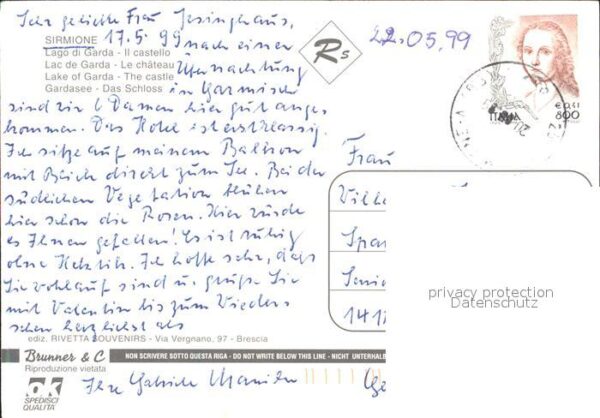 Sehr geliebte Frau Jesinghaus,
SIRMIONE 17.5.99 nach einer
Lago di Garda - Il castello
Lac de Garda - Le château
Lake of Garda - The castle
Gardasee - Das Schloss
Übernachtung
in Garmisch
sind wir 6 Damen hier gut ange-
kommen. Das Hotel ist erstklassig.
Ich sitze auf meinem Balkon
mit Blick direkt zum See. Bei der
südlichen Vegetation blühen
hier schon die Rosen. Hier würde
es Ihnen gefallen! Es ist ruhig
ohne Hektik. Ich hoffe sehr, dass
Sie wohlauf sind u. grüße Sie
mit Valentin bis zum Wieder-
sehen herzlichst als
Ihre Gabriele
ediz. RIVETTA SOUVENIRS - Via Vergnano, 97 - Brescia
Brunner & C
Riproduzione vietata
OK
SPEDISCI
QUALITÀ
NON SCRIVERE SOTTO QUESTA RIGA - DO NOT WRITE BELOW THIS LINE - NICHT UNTERHALB
Rs
22.05.99
ITALIA
€ 0,41
800
Frau
Ville
Spa
Seni
141
privacy protection
Datenschutz